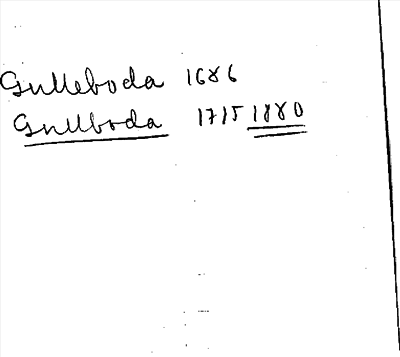 Gulleboda 1686
Gullboda 1715 1880